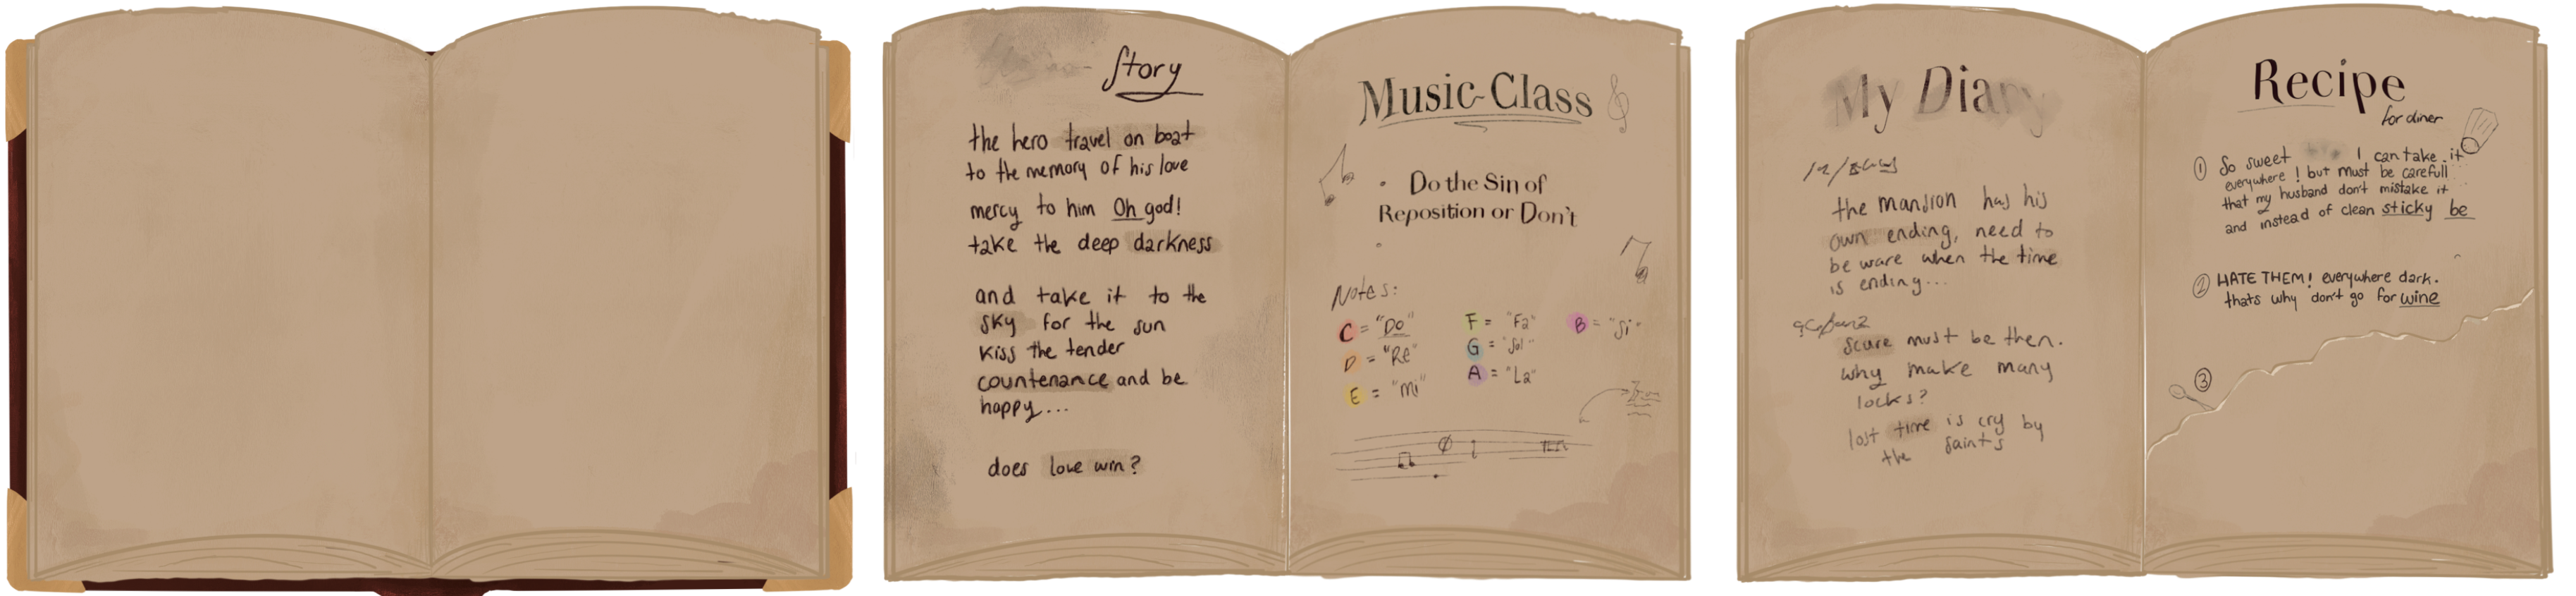 Story
the hero travel on boat
to the memory of his love
mercy to him Oh god!
take the deep darkness
and take it to the
sky for the sun
kiss the tender
countenance and be
happy...
does love win?
Music-Class
Do the Sin of
Reposition or Don't
Notes:
C = "Do"
D = "Re"
E = "Mi"
F = "Fa"
G = "Sol"
A = "La"
B = "Si"
My Diary
the mansion has his
own ending, need to
be ware when the time
is ending...
scure must be then.
why make many
locks?
lost time is cry by
the saints
Recipe
for diner
① So sweet I can take it
everywhere! but must be carefull
that my husband don't mistake it
and instead of clean sticky be
② HATE THEM! everywhere dark.
thats why don't go for wine
③